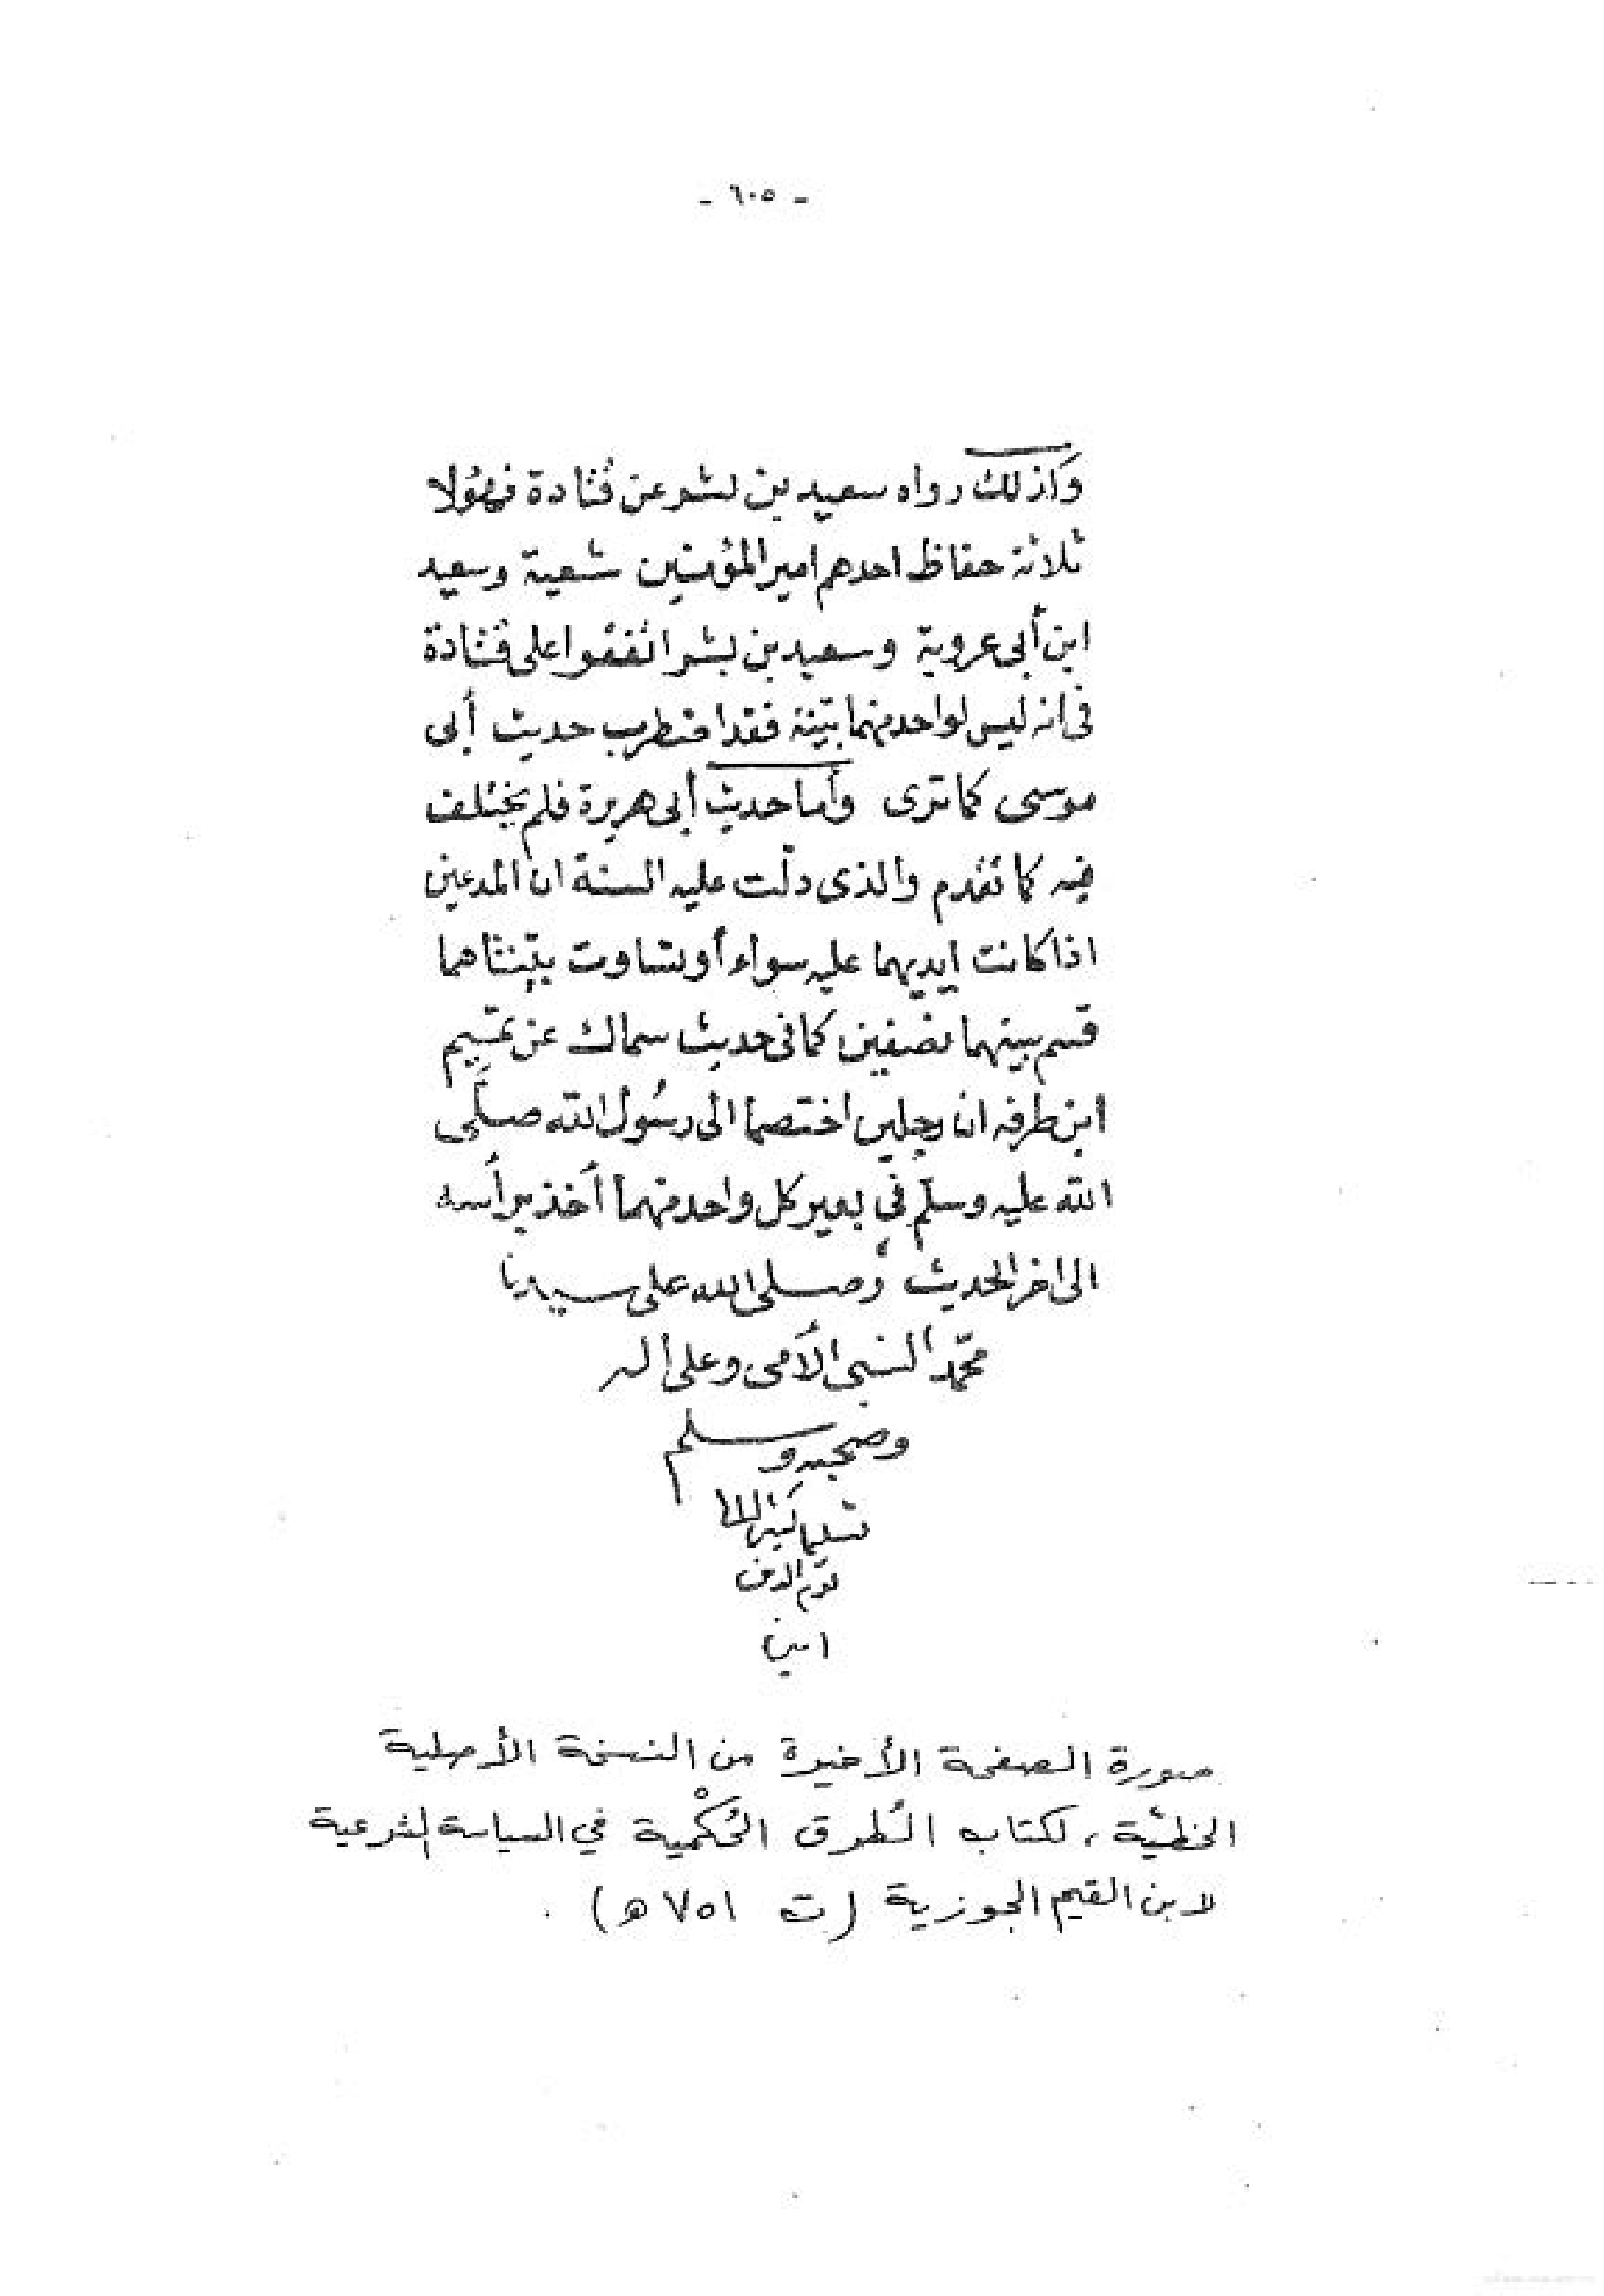 - ٦٠٥ -
وكذلك رواه سعيد بن بشر عن قتادة فهؤلا
ثلاثة حفاظ احدهم امير المؤمنين شعبة وسعيد
ابن أبى عروبة وسعيد بن بشر اتفقوا على قتادة
فى انه ليس لواحد منهما بيّنة فقد اضطرب حديث أبى
موسى كما ترى وأما حديث أبى هريرة فلم يختلف
فيه كما تقدم والذى دلّت عليه السنة ان المدعين
اذا كانت ايديهما عليه سواء أو تساوت بيّنتاهما
قسم بينهما نصفين كما فى حديث سماك عن تميم
ابن طرفه ان رجلين اختصما الى رسُول الله صلّى
الله عليه وسلّم في بعير كل واحد منهما أخذ برأسه
الى اخر الحديث وصلى الله على سيدنا
محمّد النبى الأمى وعلى اله
وصحبه وسلم
تسليما كثيرا الى
يوم الدين
امين
صورة الصفحة الأخيرة من النسخة الأصلية
الخطيّة، لكتاب الطُرق الحُكْمية في السياسة الشرعية
لابن القيم الجوزية (ت ٧٥١ هـ).